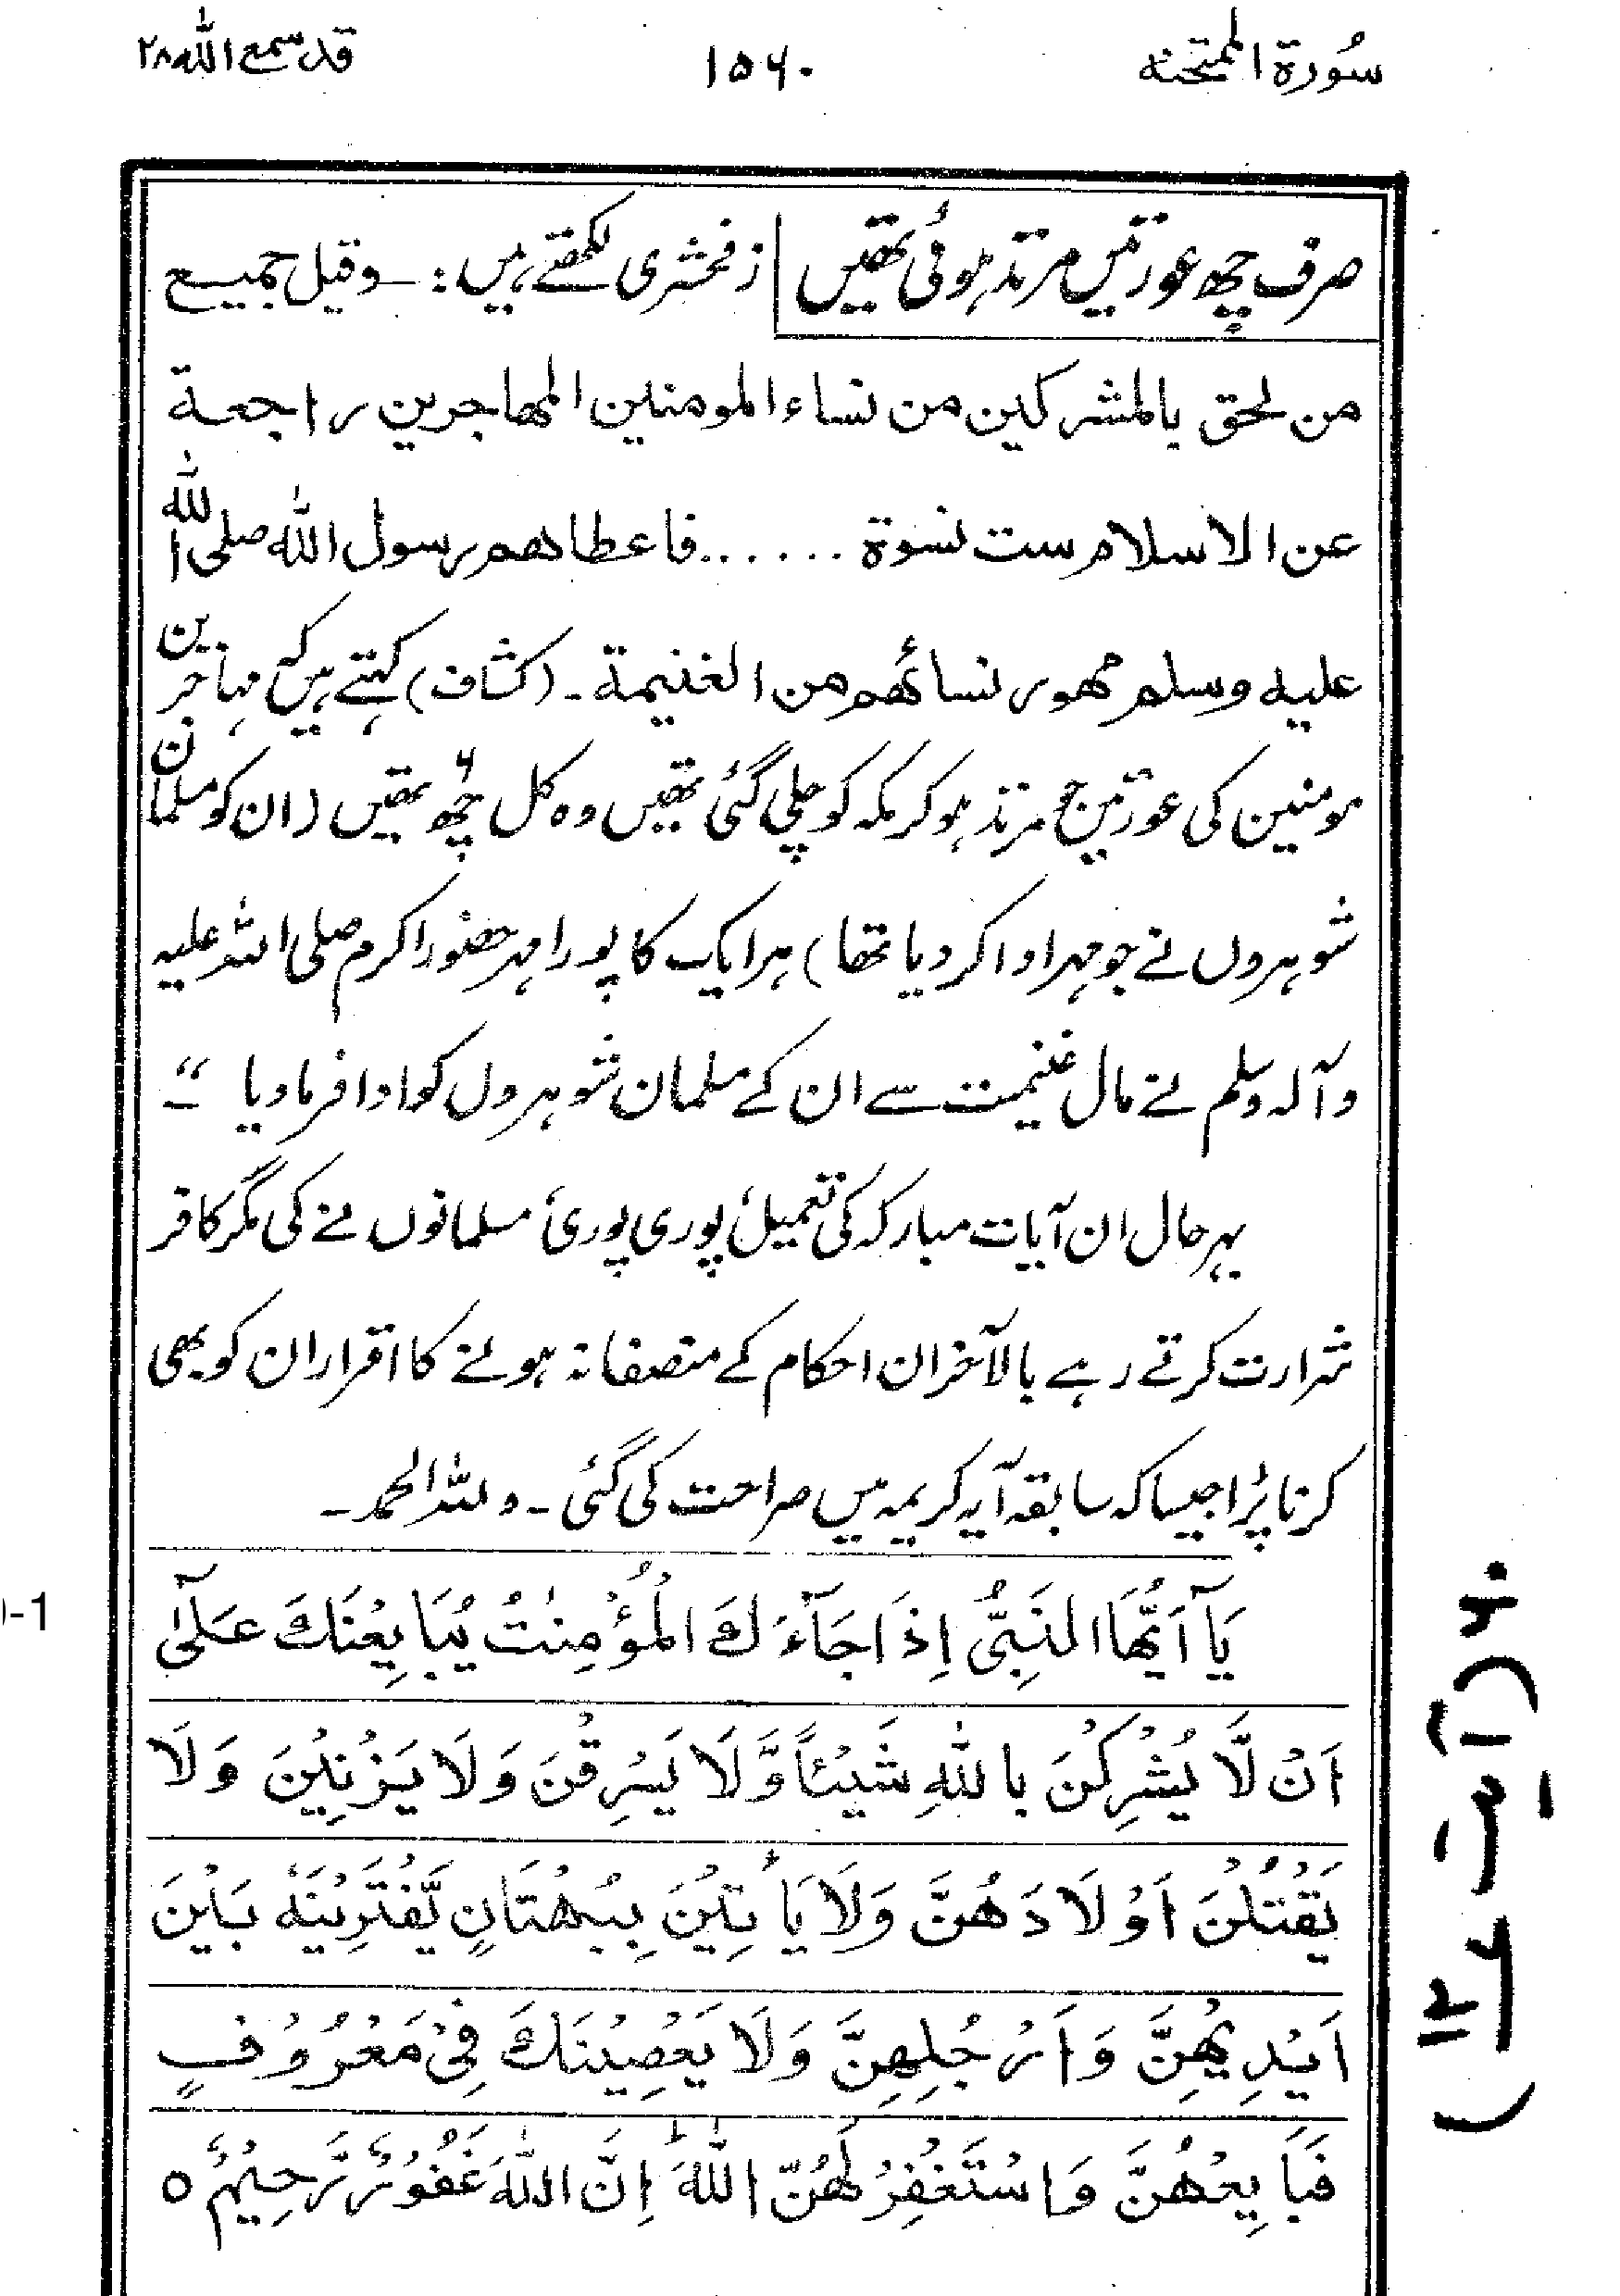 سُورۃ الممتحنہ ۱۵۶۰ قد سمع اللہ ۲۸
صرف چھ عورتیں مرتد ہوئی تھیں زمخشری لکھتے ہیں :۔ وقیل جمیع
من لحق بالمشرکین من نساء المومنین المھاجرین راجعۃ
عن الاسلام ست نسوۃ ...... فاعطاھم رسول اللہ صلی اللہ
علیہ وسلم مھور نسائھم من الغنیمۃ ۔ (کشاف) کہتے ہیں کہ مہاجرین
مومنین کی عورتیں جو مرتد ہو کر مکہ کو چلی گئی تھیں وہ کل چھ۶ تھیں (ان کو مسلمان
شوہروں نے جو مہر ادا کر دیا تھا) ہر ایک کا پورا مہر حضور اکرم صلی اللہ علیہ
وآلہ وسلم نے مال غنیمت سے ان کے مسلمان شوہروں کو ادا فرما دیا ‘‘۔
بہر حال ان آیات مبارکہ کی تعمیل پوری پوری مسلمانوں نے کی مگر کافر
شرارت کرتے رہے بالآخر ان احکام کے منصفانہ ہونے کا اقرار ان کو بھی
کرنا پڑا جیسا کہ سابقہ آیہ کریمہ میں صراحت کی گئی ۔ وللہ الحمد ۔
یَآ اَیُّھَا النَبِیُّ اِذَا جَآءَكَ الْمُؤْمِنٰتُ یُبَایِعْنَكَ عَلٰٓی
اَنْ لَّا یُشْرِكْنَ بِاللّٰہِ شَیْئاً وَّلَا یَسْرِقْنَ وَلَا یَزْنِیْنَ وَلَا
یَقْتُلْنَ اَوْلَادَھُنَّ وَلَا یَأْتِیْنَ بِبُھْتَانٍ یَّفْتَرِیْنَہٗ بَیْنَ
اَیْدِیْھِنَّ وَاَرْجُلِھِنَّ وَلَا یَعْصِیْنَكَ فِیْ مَعْرُوْفٍ
فَبَایِعْھُنَّ وَاسْتَغْفِرْ لَھُنَّ اللّٰہَ ؕ اِنَّ اللّٰہَ غَفُوْرٌ رَّحِیْمٌ ○
-1